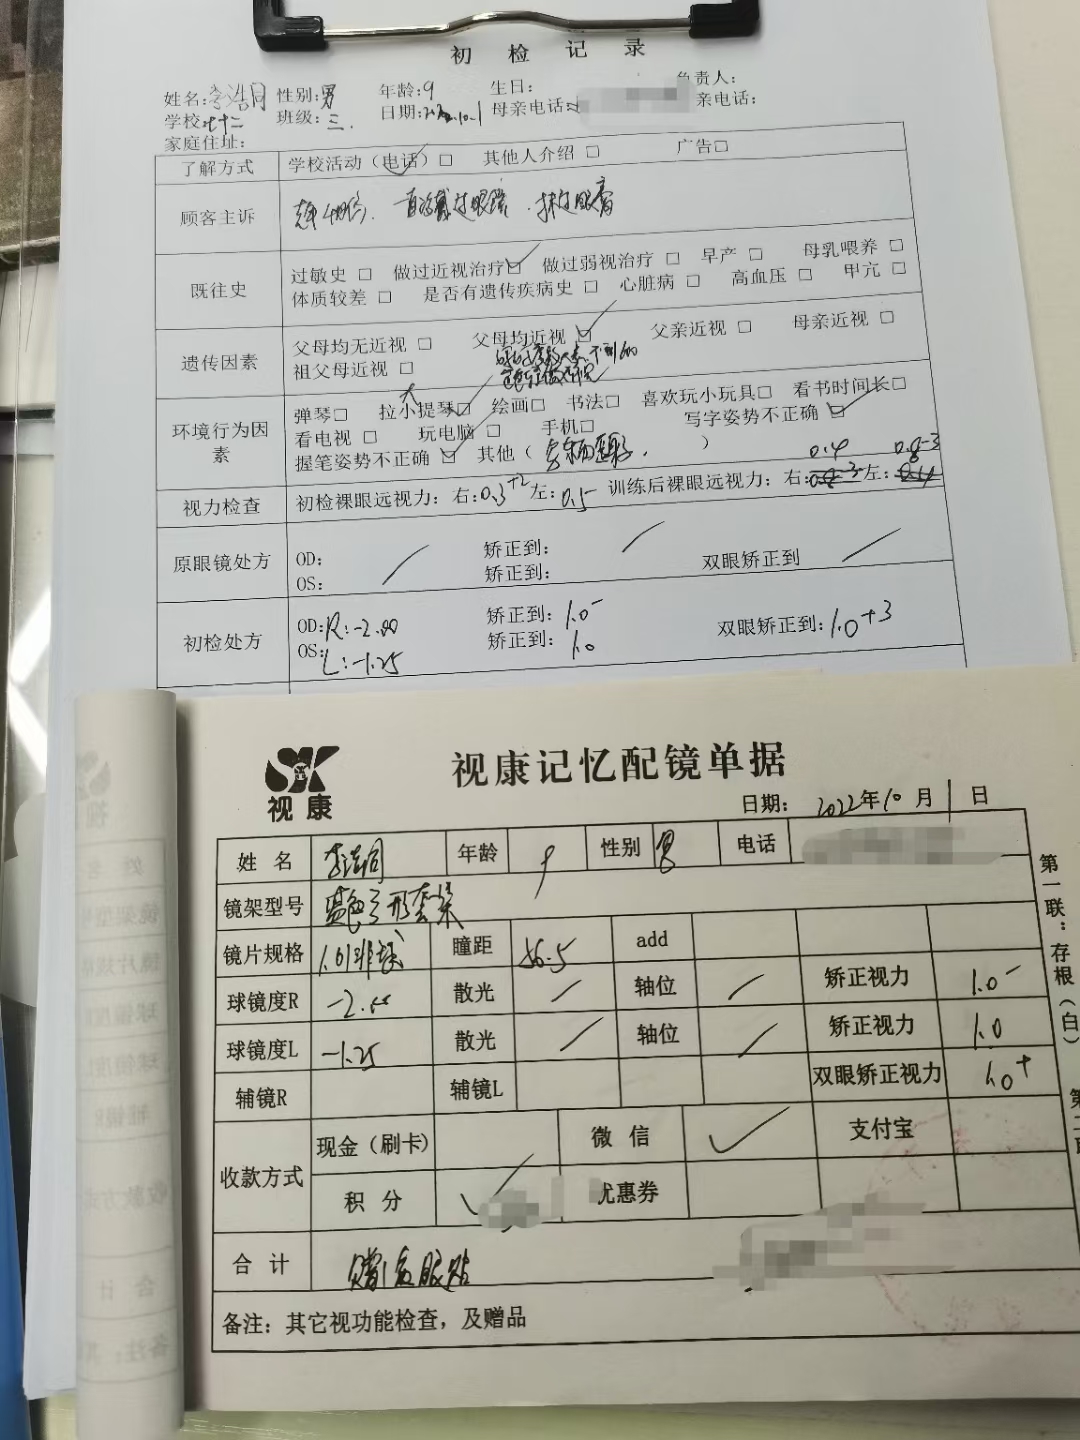 初检记录
姓名:李浩同 性别:男 年龄:9 生日: 负责人:
学校:七十二 班级:三. 日期:2022.10.1 母亲电话: 亲电话:
家庭住址:
了解方式 学校活动（电话）□ 其他人介绍 □ 广告□
顾客主诉 戴过眼镜
既往史 过敏史 □ 做过近视治疗☑ 做过弱视治疗 □ 早产 □ 母乳喂养 □
体质较差 □ 是否有遗传疾病史 □ 心脏病 □ 高血压 □ 甲亢 □
遗传因素 父母均无近视 □ 父母均近视 ☑ 父亲近视 □ 母亲近视 □
祖父母近视 □
环境行为因素 弹琴□ 拉小提琴☑ 绘画□ 书法□ 喜欢玩小玩具□ 看书时间长□
大
看电视 □ 玩电脑 □ 手机□ 写字姿势不正确 ☑
握笔姿势不正确 ☑ 其他（ ）
视力检查 初检裸眼远视力: 右:0.3+2 左:0.5- 训练后裸眼远视力: 右:0.4 左:0.8-3
原眼镜处方 OD: 矫正到: 双眼矫正到
OS: 矫正到:
初检处方 OD:R:-2.00 矫正到:1.0- 双眼矫正到:1.0+3
OS:L:-1.25 矫正到:1.0
视康
视康记忆配镜单据
日期: 2022年10月1日
姓名 李浩同 年龄 9 性别 男 电话
镜架型号 蓝色 形套架
镜片规格 1.61非球 瞳距 56.5 add
球镜度R -2.00 散光 / 轴位 / 矫正视力 1.0-
球镜度L -1.25 散光 / 轴位 / 矫正视力 1.0
辅镜R 辅镜L 双眼矫正视力 1.0+
收款方式 现金（刷卡） 微信 ✓ 支付宝
积分 ✓ 优惠券
合计 赠1盒眼贴
备注: 其它视功能检查，及赠品
第一联:存根（白）